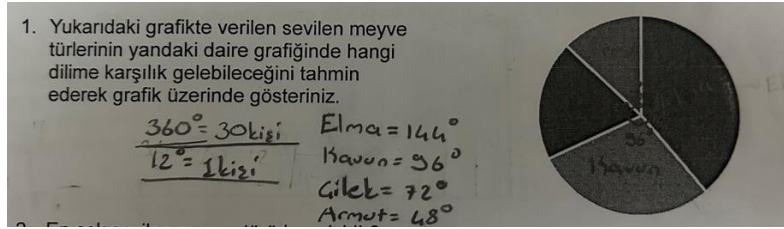 1. Yukarıdaki grafikte verilen sevilen meyve
türlerinin yandaki daire grafiğinde hangi
dilime karşılık gelebileceğini tahmin
ederek grafik üzerinde gösteriniz.
360° = 30kişi
12° = 1kişi
Elma = 144°
Kavun = 96°
Çilek = 72°
Armut = 48°
Elma
96
Kavun